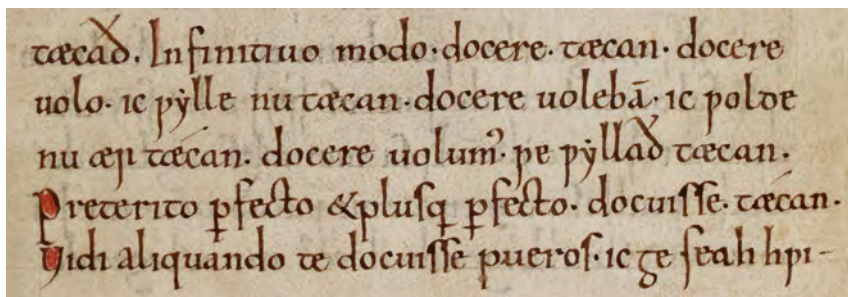 tæcað. Infinitiuo modo· docere· tæcan· docere
uolo· ic ƿẏlle nu tæcan· docere uolebā· ic ƿolde
nu ær tæcan. docere uolum᷒· ƿe ƿẏllað tæcan.
Preterito ꝑfecto &plusq̄ ꝑfecto· docuisse· tæcan·
Vidi aliquando te docuisse pueros· ic ge seah hƿi-